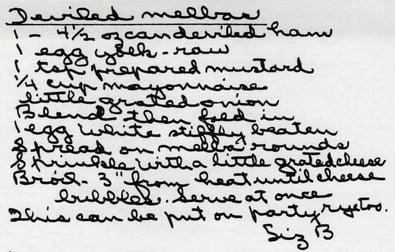 Deviled melbas
1 - 4½ oz can deviled ham
1 egg yolk - raw
1 tsp prepared mustard
¼ cup mayonnaise
little grated onion
Blend then fold in
1 egg white stiffly beaten
Spread on melba rounds
Sprinkle with a little grated cheese
Broil 3" from heat until cheese
bubbles. Serve at once
This can be put on party rye too.
Liz B